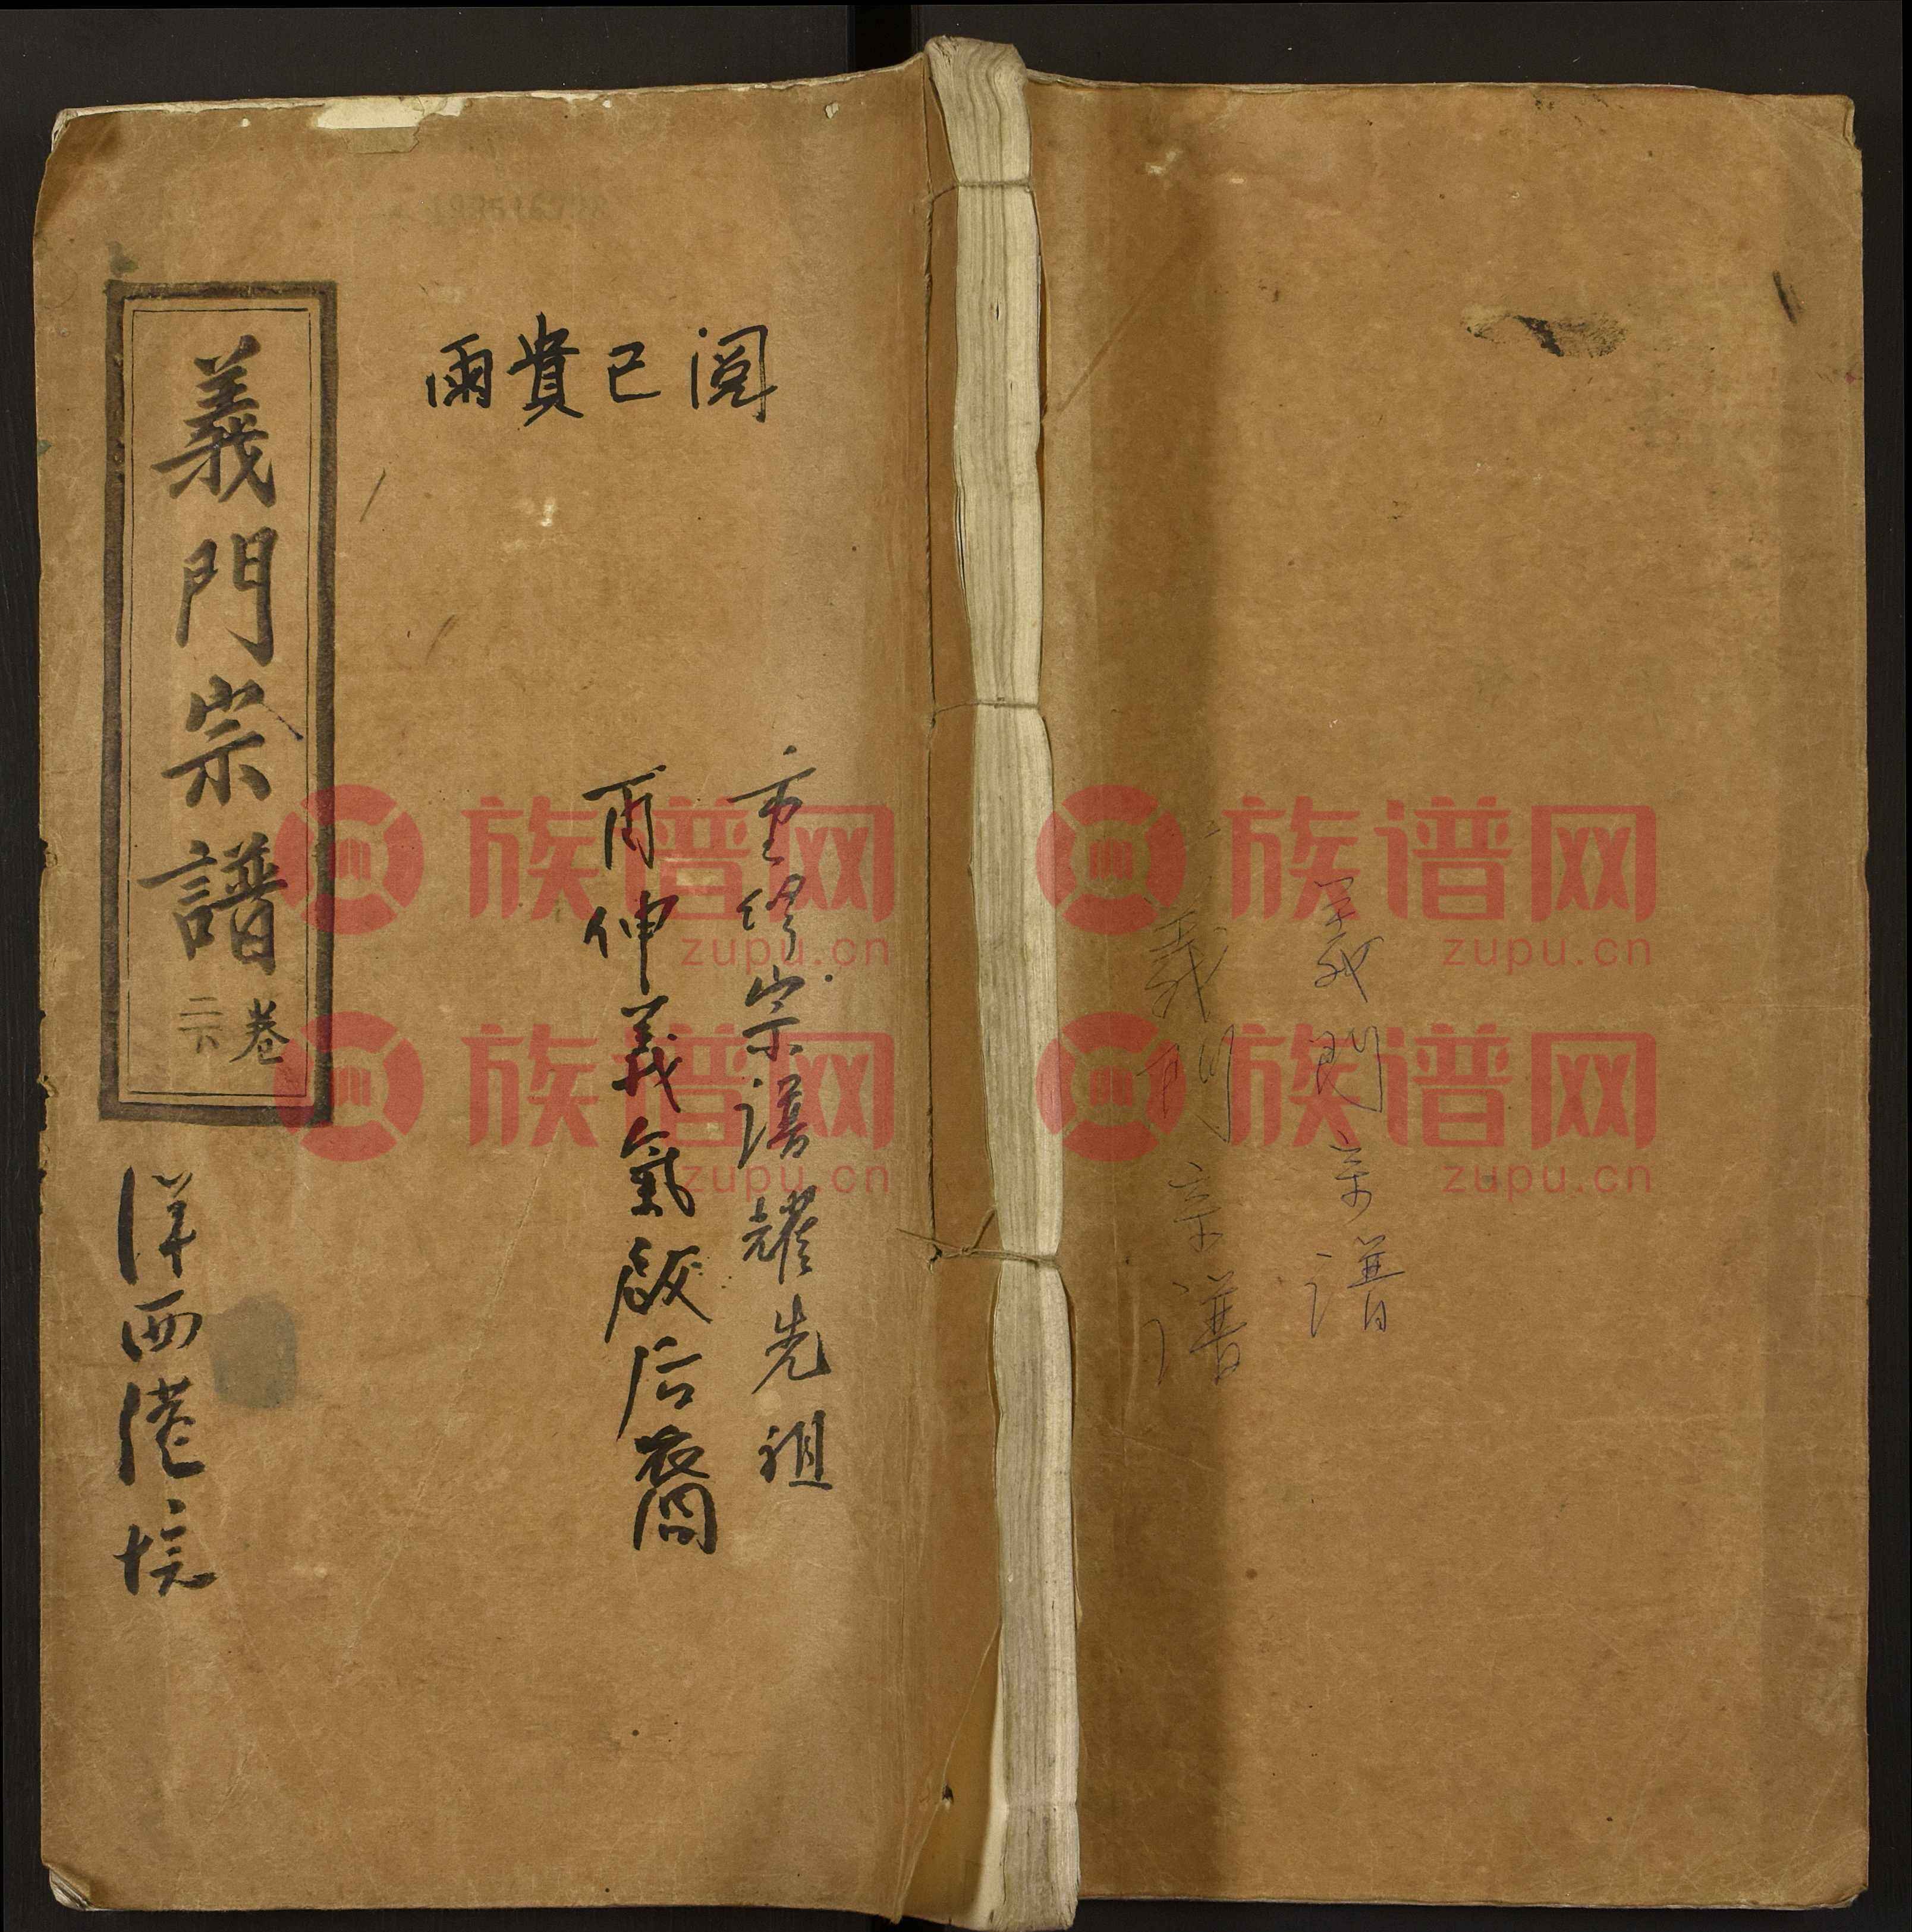 義門宗譜
卷
二六
洋西港境
雨貴已阅
重修宗谱耀先祖
甫伸義氣啟后裔
義門宗譜
義門宗譜
族谱网
zupu.cn
族谱网
zupu.cn
族谱网
zupu.cn
族谱网
zupu.cn